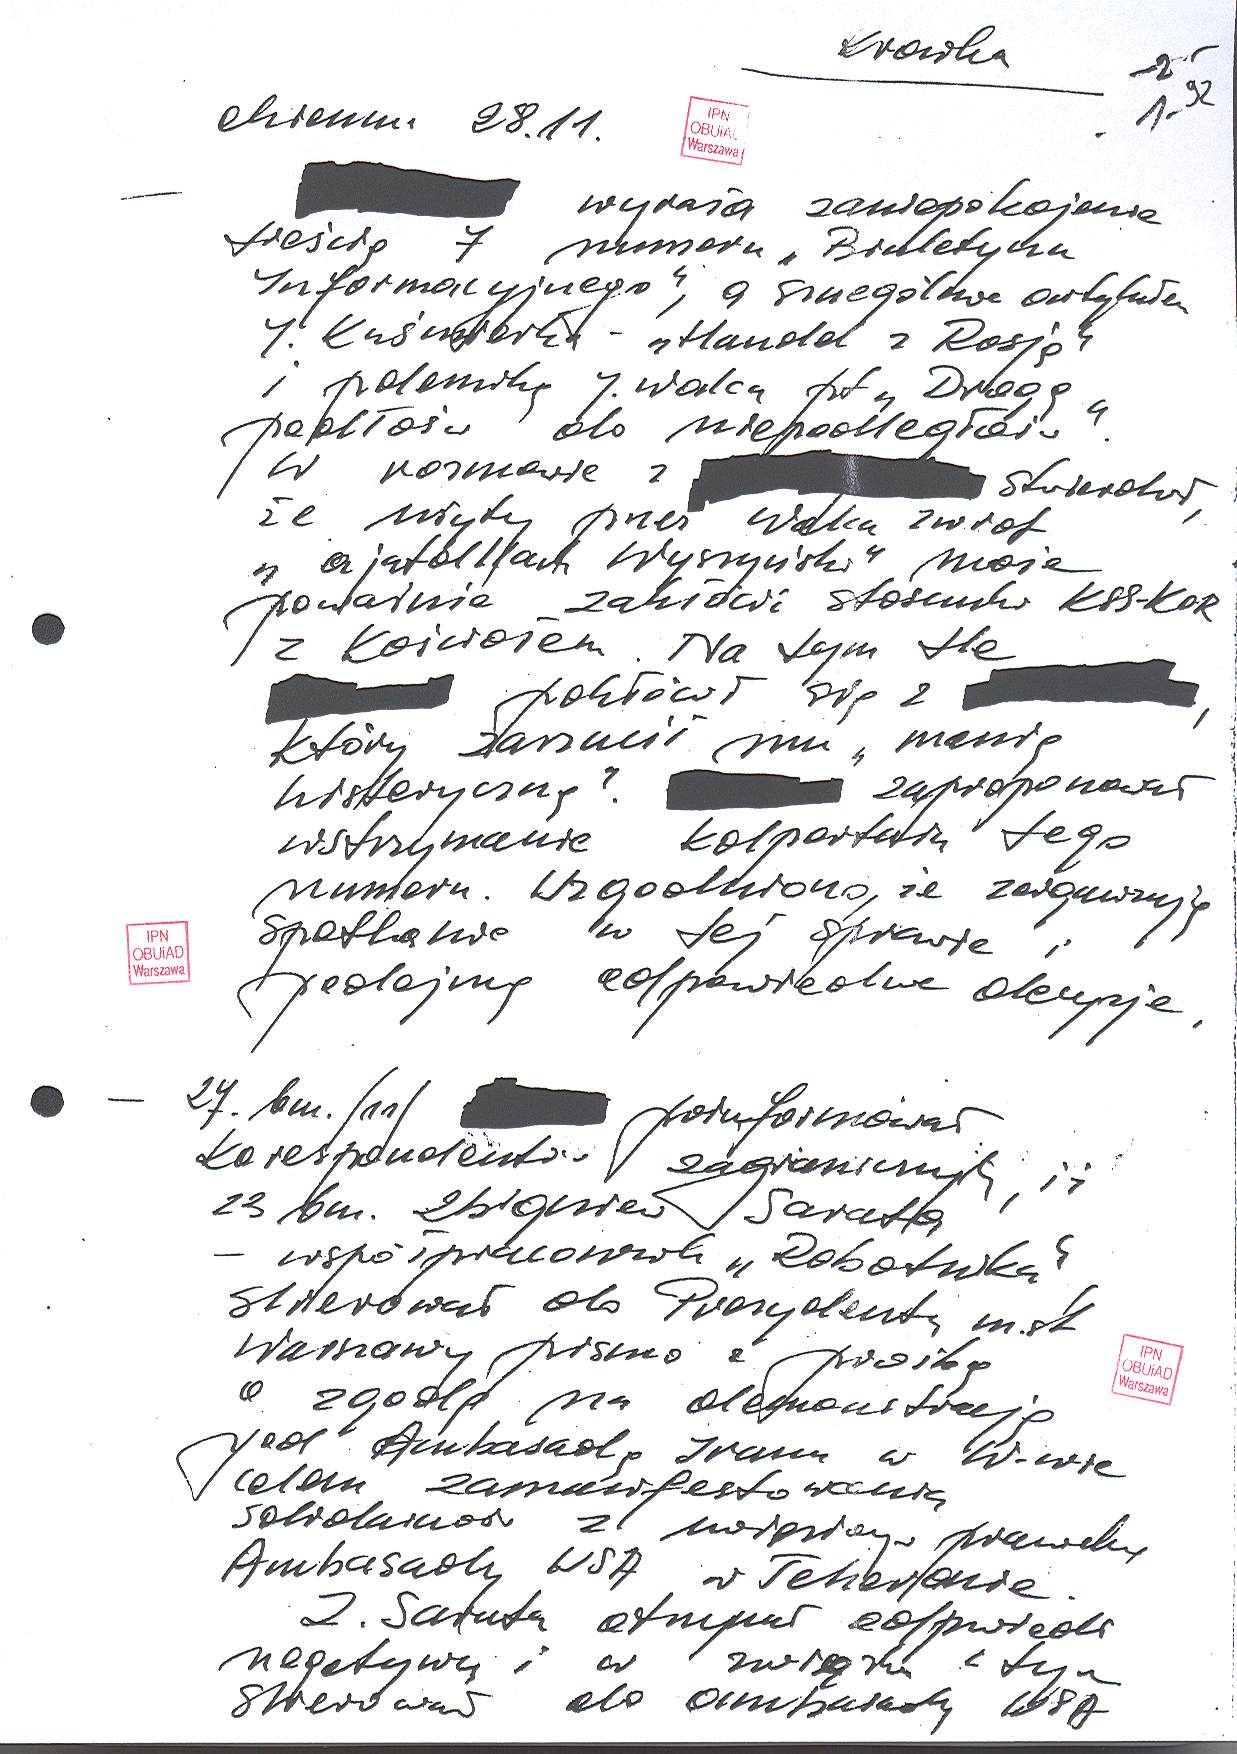 Krówka
-2-
1-92
dziennu 28.11.
IPN
OBUiAD
Warszawa
— wyraża zaniepokojenie
treścią 7 numeru „Biuletynu
Informacyjnego", a szczególnie artykułem
J. Kuśmierka - „Handel z Rosją"
i polemiką J. Walca pt „Drogą
podłości do niepodległości".
W rozmowie z stwierdził,
że użyty przez Walca zwrot
„ajatollach Wyszyński" może
poważnie zakłócić stosunki KSS-KOR
z Kościołem. Na tym tle
pokłócił się z ,
który zarzucił mu „manię
histeryczną". zaproponował
wstrzymanie kolportażu tego
numeru. Uzgodniono, że zorganizują
spotkanie w tej sprawie i
podejmą odpowiednie decyzje.
IPN
OBUiAD
Warszawa
— 27. bm. /11/ poinformował
korespondentów zagranicznych, iż
23 bm. Zbigniew Saruta
- współpracownik „Robotnika"
skierował do Prezydenta m.st
Warszawy pismo z prośbą
o zgodę na demonstrację
pod Ambasadą Iranu w W-wie
celem zamanifestowania
solidarności z uwięzionymi
Ambasady USA w Teheranie.
IPN
OBUiAD
Warszawa
Z. Saruta otrzymał odpowiedź
negatywną i w związku z tym
skierował do ambasady USA